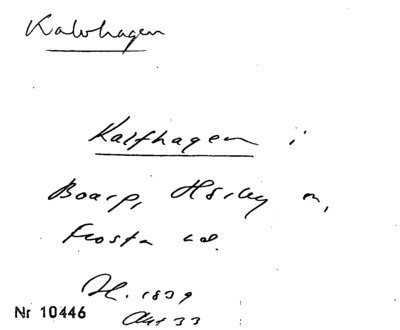 Kalvhagen
Kalfhagen i
Boarp, Hörby sn,
Frosta hd.
H. 1839
Akt 33
Nr 10446